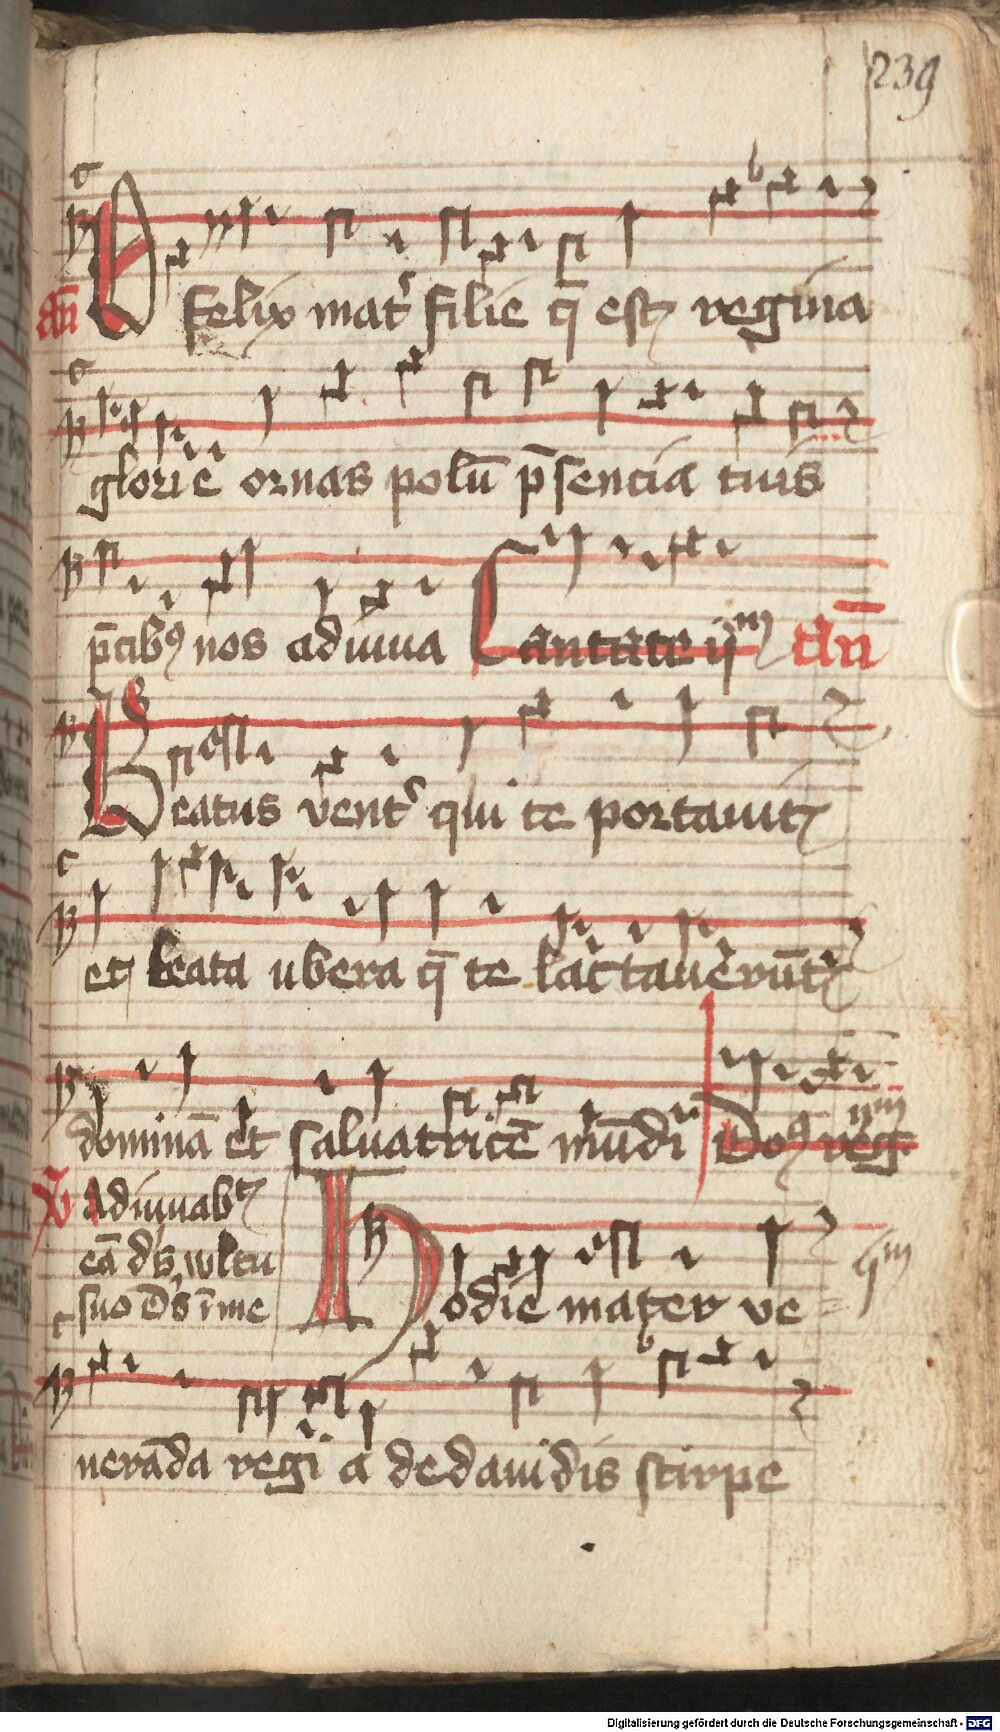 239
an̄ O felix mat᷑ filie q̄ est regina
glorie ornas polū p̄sencia tuis
p̄cibꝰ nos adiuua Cantate ijm an̄
Beatus vent᷑ qui te portauit
et beata ubera q̄ te lactauerūt
dominā et saluatricē mūdi Dn̄s reg
ỽ Adiuuabt
eā ds wltu
suo Ds ī me
Hodie mater ve=
nerāda regia dedauidis stirpe
Digitalisierung gefördert durch die Deutsche Forschungsgemeinschaft - DFG